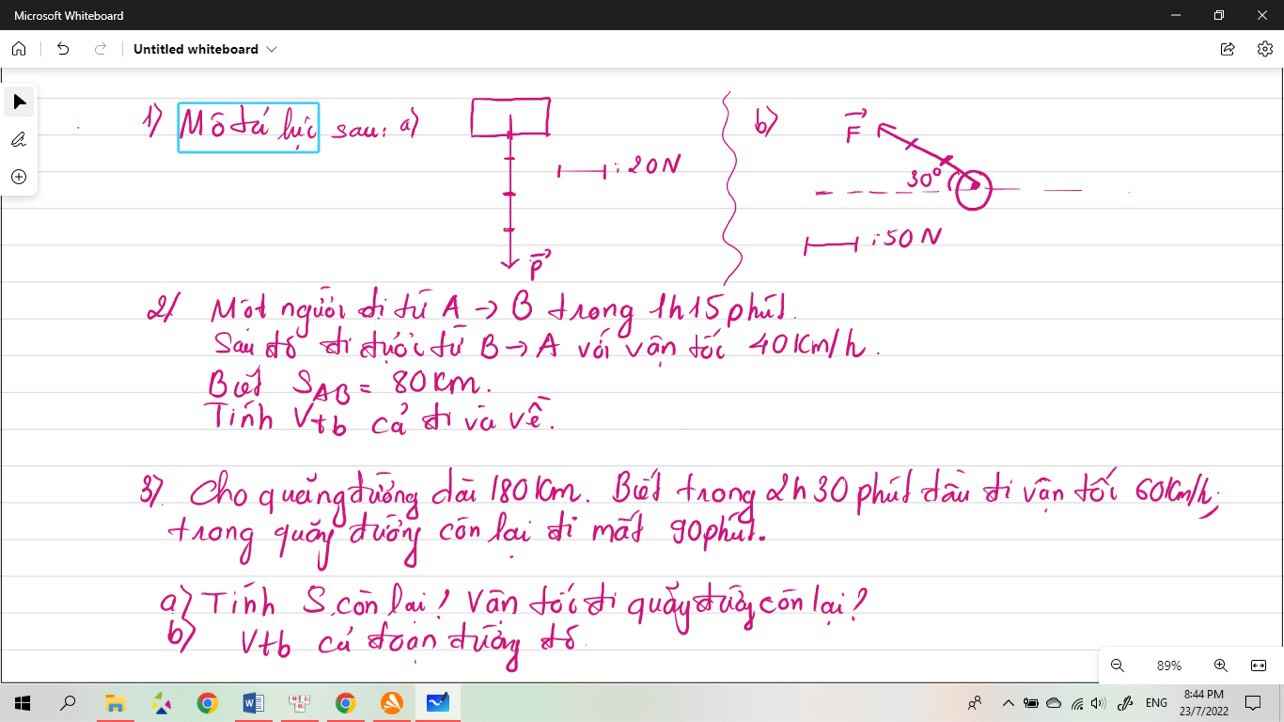 Microsoft Whiteboard
Untitled whiteboard
1) Mô tả lực sau: a)
: 20N
P
b)
F
30°
: 50 N
2/ Một người đi từ A → B trong 1h15phút.
Sau đó đi được từ B → A với vận tốc 40Km/h.
Biết SAB = 80km.
Tính Vtb cả đi và về.
3) Cho quãng đường dài 180km. Biết trong 2h30phút đầu đi vận tốc 60Km/h;
trong quãng đường còn lại đi mất 90phút.
a) Tính S còn lại? Vận tốc đi quãng đường còn lại?
b) Vtb cả đoạn đường đó.
89%
ENG
8:44 PM
23/7/2022